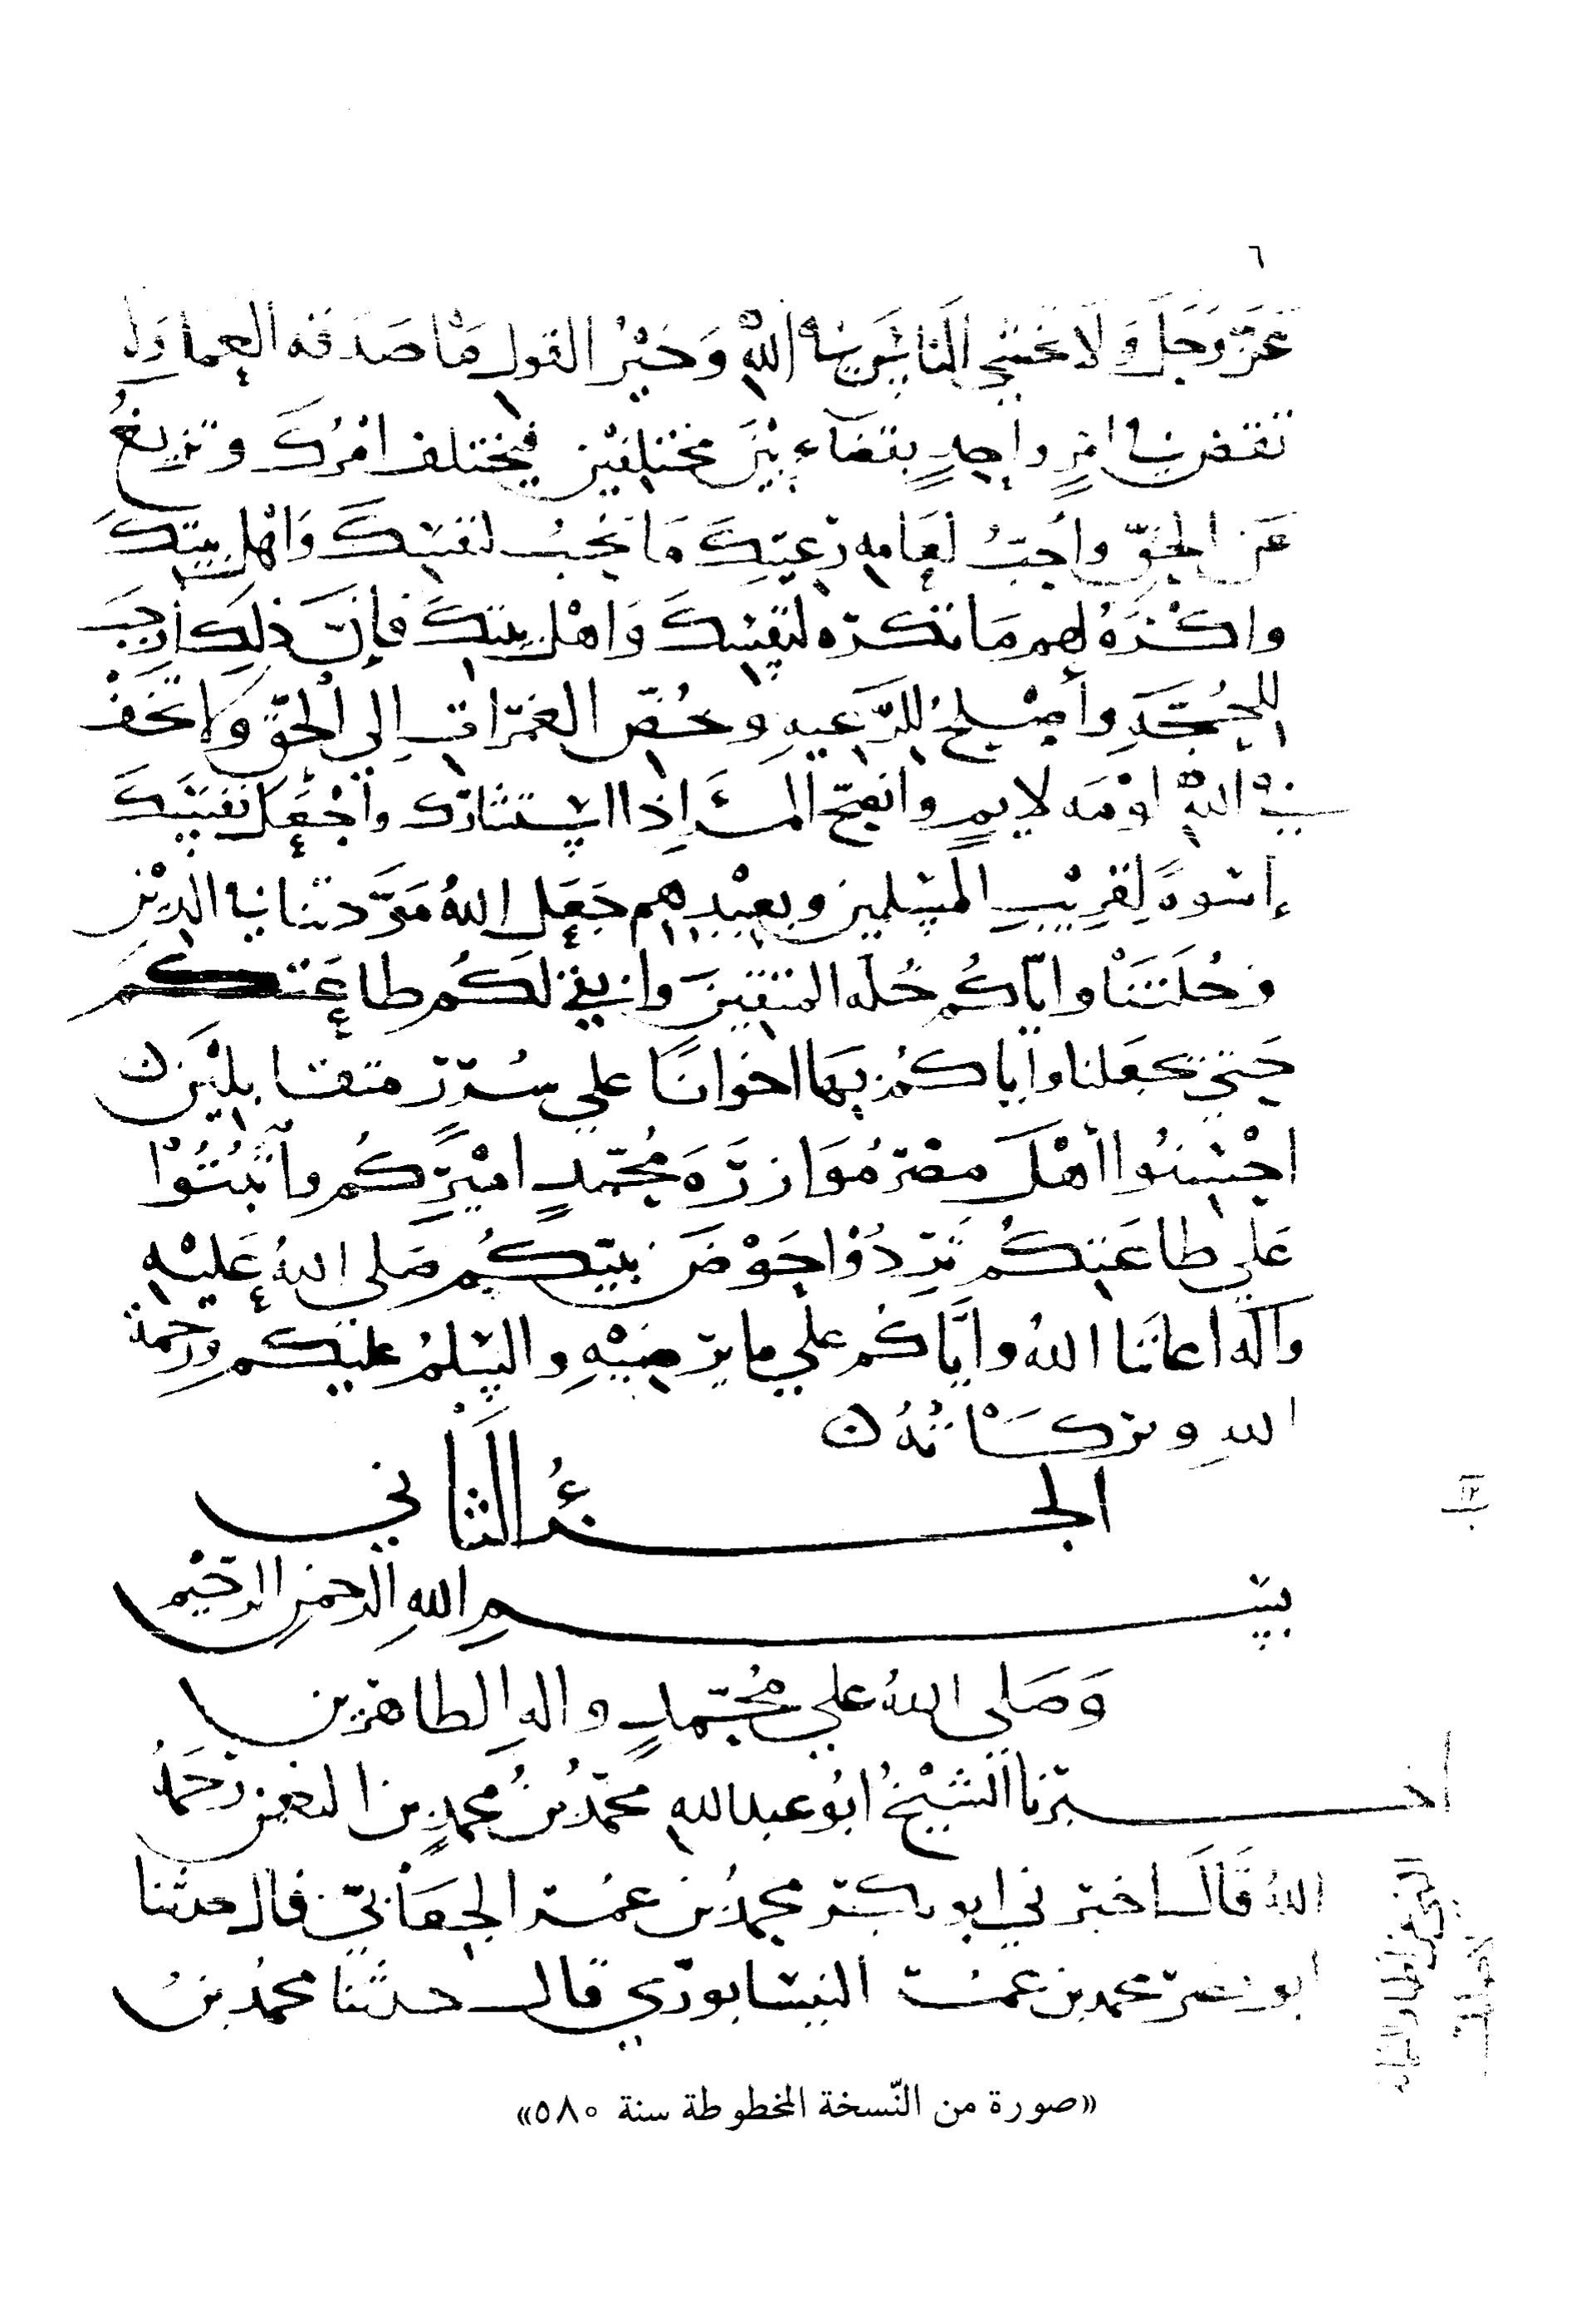 ٦
عَزَّ وَجَلَّ وَلَا تخشي الناسَ في اللهِ وَخَيْرُ القول مَا صَدَقه العمل وَلا
تقض في امرٍ واحدٍ بقضآءين مختلفين فيختلف امْرُكَ وتزيغُ
عَن الحقّ واَحِبّ لعَامه رَعيّتِكَ مَا تحُبُ لنفسِكَ وَاهْل بيتكَ
واكْرَهُ لهم مَا تكره لنَفِسْكَ وَاهْل بيتكَ فإنَّ ذلِكَ اَوجَبَ
للحُجّةِ وأصْلحُ للرَّعيهِ وَخُض الغمَراتِ اِلى الحَقّ وَلا تَخَفْ
في اللهِ لوْمَه لايم وانصح المرءَ اِذا استشارَك واجْعَل نفسَكَ
إسوهً لِقَرِيْبِ المسلمين وبعِيْدِهِم جَعَل اللهُ مَوَدّتنا في الدِيْن
وَخُلَّتَنَا وايّاكُم خُلّه المتقينَ وابقى لكُم طاعَتكُم
حَتي تجعَلنا واياكُم بهَا اخوانًا علي سُرُرٍ متقابلِيْن ن
احْسِنُوا أهْلَ مصر مُوَازرَهَ مُحمّدٍ امْيرِكُم واثْبُتُوْا
عَلي طاعَتِكُم تَرِدُوْا حَوْضَ نبيّكُم صَلى اللهُ عَليْهِ
وَآله اعَانَنَا اللهُ وايَّاكُم علي ما يرضيْهِ والسّلمُ عليكم ورحمة
اللهِ وبركَاتُهُ ن
الجزءُ الثَاني
١٢
ب
بسم اللهِ الرحمن الرحيم
وَصَلى اللهُ علي مُحمّدٍ واله الطاهرين
اخبرنا الشيْخُ ابُو عبدالله محمّدُ بنُ محمدٍ بن النعمن رَحمَهُ
اللهُ قَالَ اخبرني ابو بكر محمدُ بن عمُر الجعَابيّ قال حدثنا
ابو نصر محمد بن عمر النيسَابوري قال حدثنا محمدُ بنُ
«صورة من النّسخة المخطوطة سنة ٥٨٠»